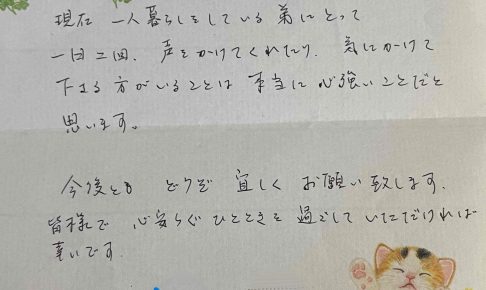 現在 一人暮らしをしている弟にとって
一日二回、声をかけてくれたり、気にかけて
下さる方がいることは 本当に心強いことだと
思います。
今後とも どうぞ 宜しく お願い致します。
皆様で 心安らぐひとときを過ごしていただければ
幸いです。